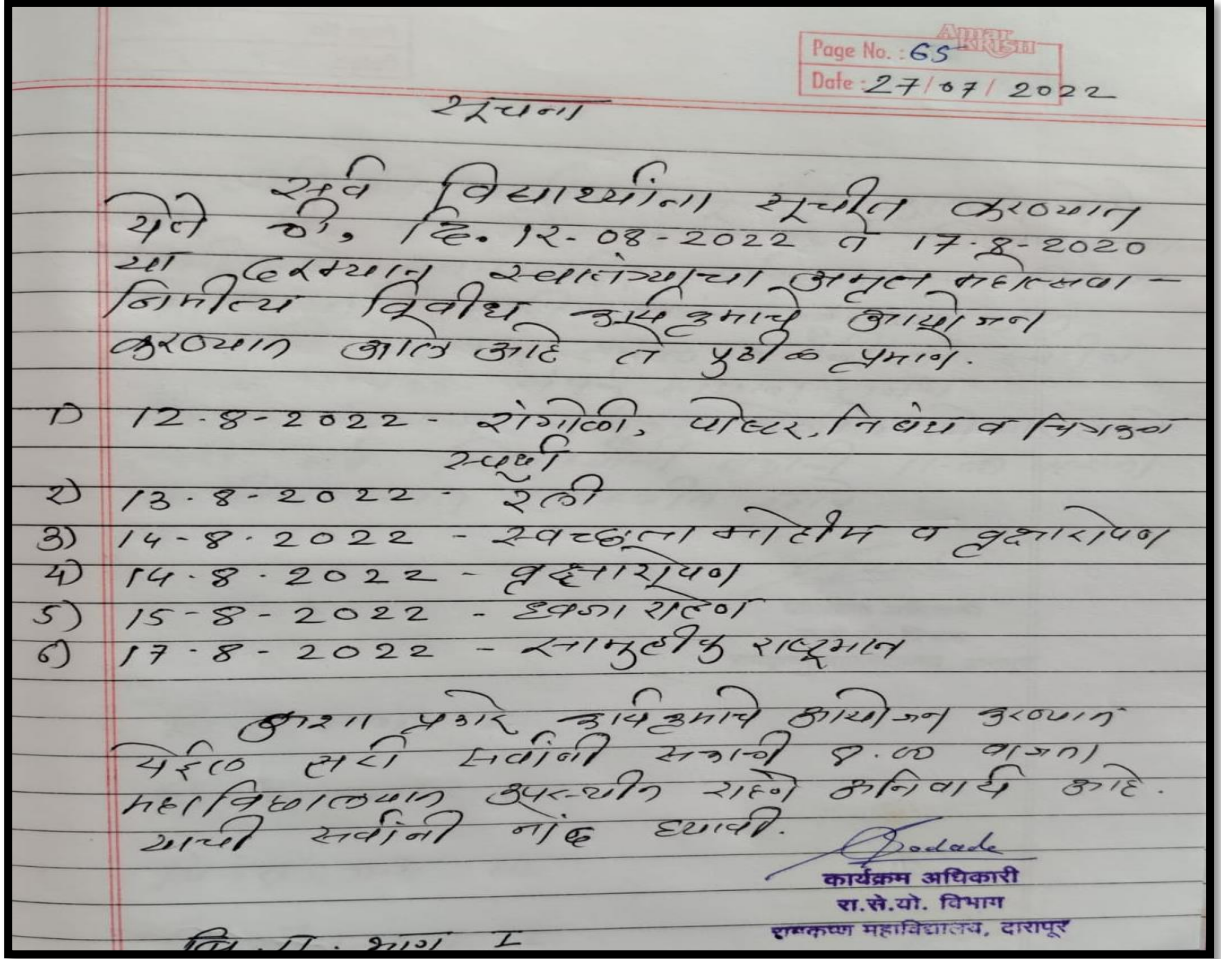 Amar
Page No. : 65
Date : 27/07/2022
सूचना
सर्व विद्यार्थ्यांना सूचीत करण्यात
येते की, दि. 12-08-2022 ते 17-8-2020
या दरम्यान स्वातंत्र्याचा अमृत महोत्सवा -
निमीत्य विवीध कार्यक्रमाचे आयोजन
करण्यात आले आहे ते पुढील प्रमाणे.
1) 12-8-2022 - रांगोळी, पोस्टर, निबंध व चित्रकला
स्पर्धा
2) 13-8-2022 - रॅली
3) 14-8-2022 - स्वच्छता मोहीम व वृक्षारोपण
4) 14-8-2022 - वृक्षारोपण
5) 15-8-2022 - ध्वजारोहण
6) 17-8-2022 - सामुहीक राष्ट्रगान
अशा प्रकारे कार्यक्रमाचे आयोजन करण्यात
येईल तरी सर्वांनी सकाळी 8.00 वाजता
महाविद्यालयात उपस्थीत राहणे अनिवार्य आहे.
याची सर्वांनी नोंद घ्यावी.
कार्यक्रम अधिकारी
रा.से.यो. विभाग
रामकृष्ण महाविद्यालय, दारापूर
भाग I